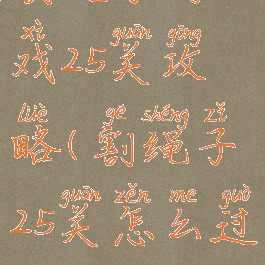 xì guān gōng
戏25关攻
lüè gē shéng zǐ
略(割绳子
guān zěn me guò
25关怎么过